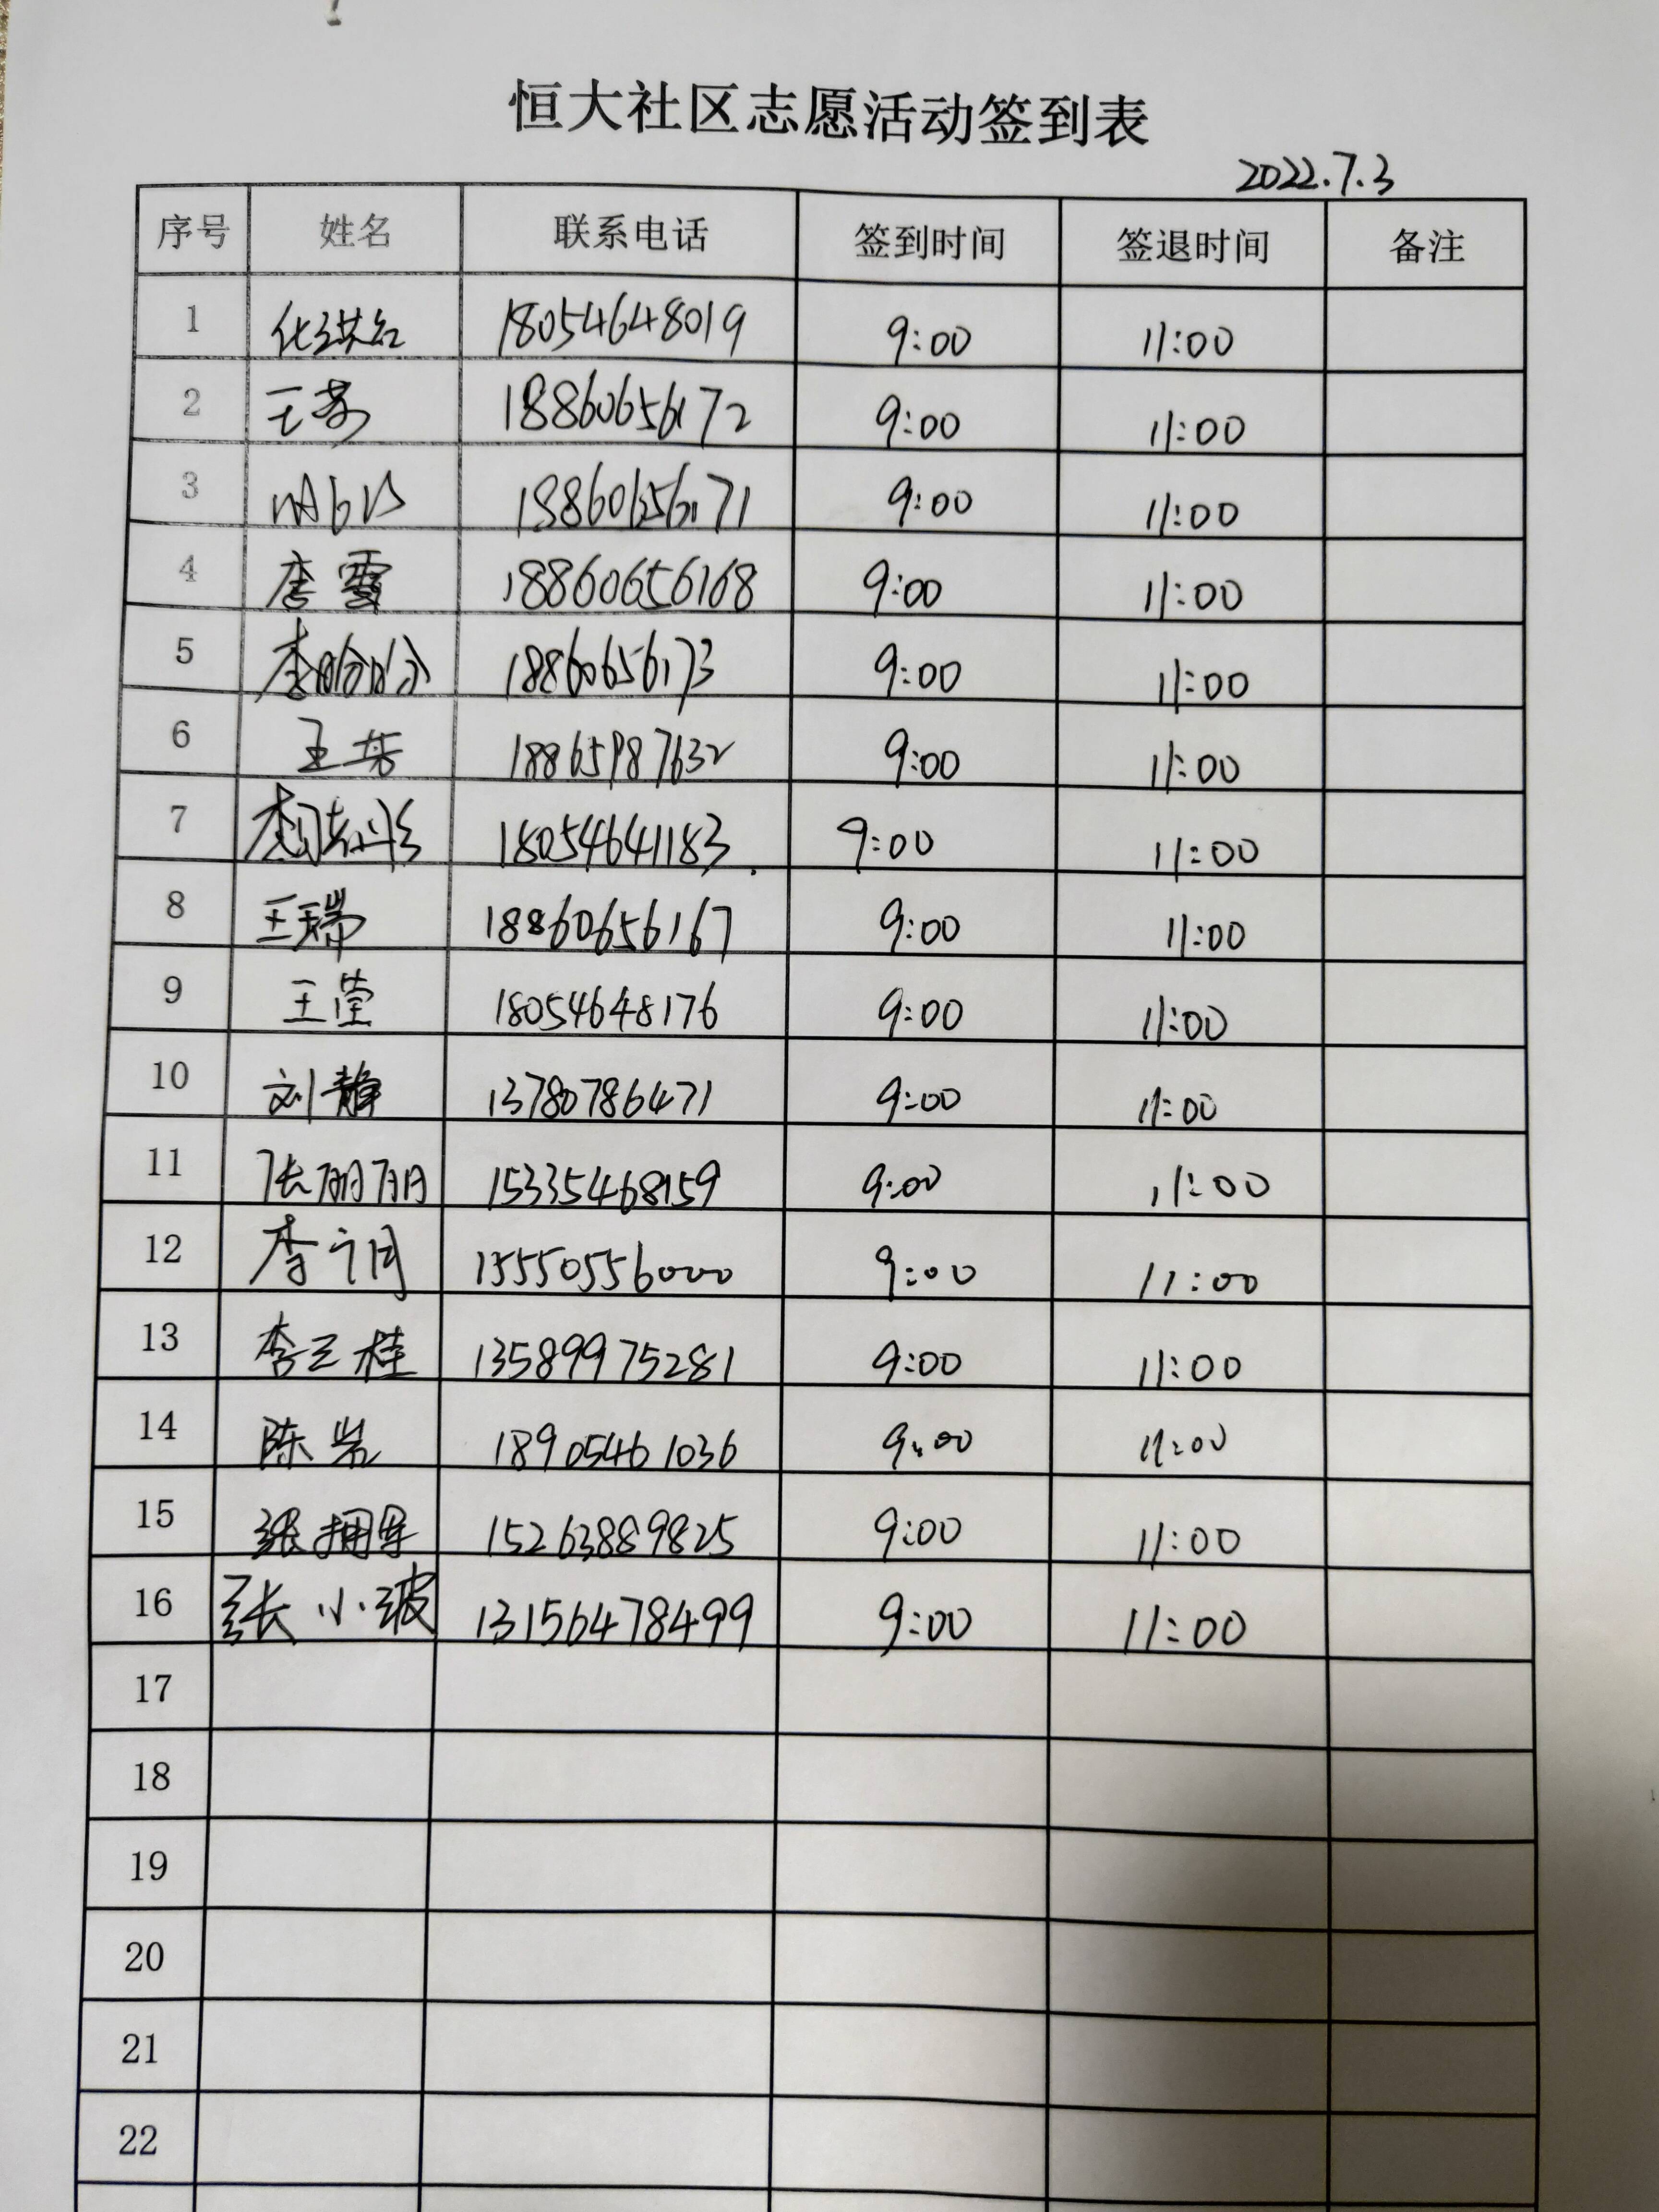 恒大社区志愿活动签到表
2022.7.3
序号 姓名 联系电话 签到时间 签退时间 备注
1 18054648019 9:00 11:00
2 18860656172 9:00 11:00
3 18860656171 9:00 11:00
4 唐雪 18860656168 9:00 11:00
5 李盼盼 18860656173 9:00 11:00
6 王 18865987632 9:00 11:00
7 18054641183 9:00 11:00
8 王瑞 18860656167 9:00 11:00
9 王莹 18054648176 9:00 11:00
10 刘静 13780786471 9:00 11:00
11 张丽丽 15335468159 9:00 11:00
12 李 15550556000 9:00 11:00
13 李三桂 13589975281 9:00 11:00
14 陈岩 18905461036 9:00 11:00
15 张拥军 15263889825 9:00 11:00
16 张小玻 13156478499 9:00 11:00
17
18
19
20
21
22